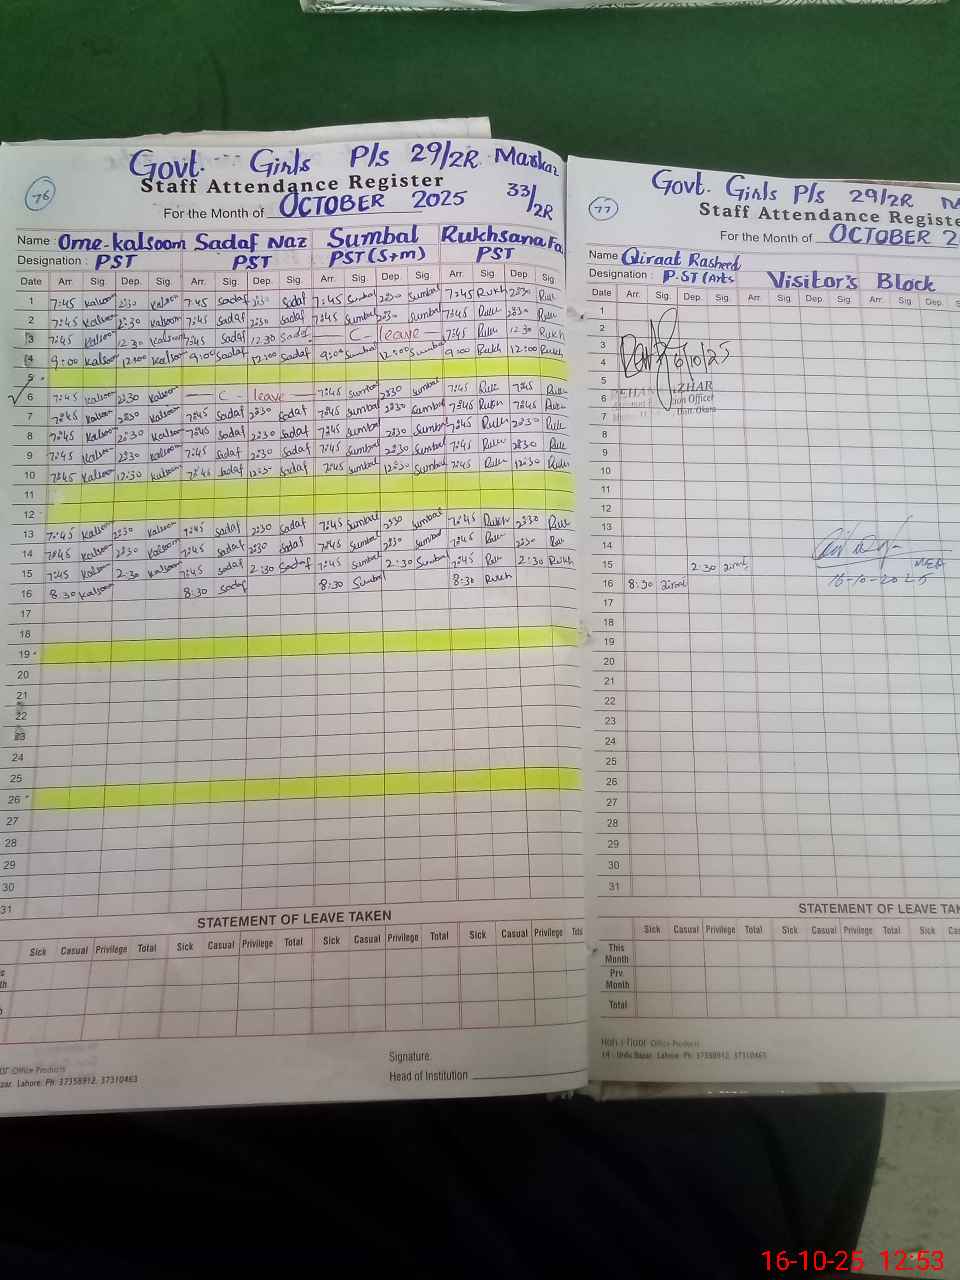 76
Govt. Girls P/s 29/2R Markaz
33/2R
Staff Attendance Register
For the Month of OCTOBER 2025
Name : Ome-kalsoom Sadaf Naz Sumbal Rukhsana Fa
Designation : PST PST PST(S+m) PST
Date Arr. Sig. Dep. Sig. Arr. Sig. Dep. Sig. Arr. Sig. Dep. Sig. Arr. Sig. Dep. Sig
1 7:45 kalsoom 2:30 kalsoom 7:45 Sadaf 2:30 Sadaf 7:45 Sumbal 2:30 Sumbal 7:45 Rukh 2:30
2 7:45 kalsoom 2:30 kalsoom 7:45 Sadaf 2:30 Sadaf 7:45 Sumbal 2:30 Sumbal 7:45 2:30
3 7:45 kalsoom 12:30 kalsoom 7:45 Sadaf 12:30 Sadaf C leave 7:45 12:30 Rukh
4 9:00 kalsoom 12:00 kalsoom 9:00 Sadaf 12:00 Sadaf 9:00 Sumbal 12:00 Sumbal 9:00 Rukh 12:00 Rukh
5
6 7:45 kalsoom 2:30 kalsoom C leave 7:45 Sumbal 2:30 Sumbal 7:45 7:45
7 7:45 kalsoom 2:30 kalsoom 7:45 Sadaf 2:30 Sadaf 7:45 Sumbal 2:30 Sumbal 7:45 Rukh 7:45
8 7:45 kalsoom 2:30 kalsoom 7:45 Sadaf 2:30 Sadaf 7:45 Sumbal 2:30 Sumbal 7:45 2:30
9 7:45 kalsoom 2:30 kalsoom 7:45 Sadaf 2:30 Sadaf 7:45 Sumbal 2:30 Sumbal 7:45 2:30
10 7:45 kalsoom 12:30 kalsoom 7:45 Sadaf 12:30 Sadaf 7:45 Sumbal 12:30 Sumbal 7:45 12:30
11
12
13 7:45 kalsoom 2:30 kalsoom 7:45 Sadaf 2:30 Sadaf 7:45 Sumbal 2:30 Sumbal 7:45 Rukh 2:30
14 7:45 kalsoom 2:30 kalsoom 7:45 Sadaf 2:30 Sadaf 7:45 Sumbal 2:30 Sumbal 7:45 2:30
15 7:45 kalsoom 2:30 kalsoom 7:45 Sadaf 2:30 Sadaf 7:45 Sumbal 2:30 Sumbal 7:45 2:30 Rukh
16 8:30 kalsoom 8:30 Sadaf 8:30 Sumbal 8:30 Rukh
17
18
19
20
21
22
23
24
25
26
27
28
29
30
31
STATEMENT OF LEAVE TAKEN
Sick Casual Privilege Total Sick Casual Privilege Total Sick Casual Privilege Total Sick Casual Privilege
Signature.
Head of Institution
Office Products
Lahore. Ph: 37358912, 37310463
77
Govt. Girls P/s 29/2R
Staff Attendance Registe
For the Month of OCTOBER 2
Name Qiraat Rasheed
Designation : P.ST (Arts Visitor's Block
Date Arr. Sig. Dep. Sig. Arr. Sig. Dep Sig. Arr. Sig. Dep.
1
2
3
4 6/10/25
5
6 ZHAR
7
8
9
10
11
12
13
14
15 2:30
16 8:30 MEA 16-10-2025
17
18
19
20
21
22
23
24
25
26
27
28
29
30
31
STATEMENT OF LEAVE TA
Sick Casual Privilege Total Sick Casual Privilege Total Sick
This Month
Prv. Month
Total
Office Products
Urdu Bazar. Lahore. Ph: 37358912, 37310463
16-10-25 12:53